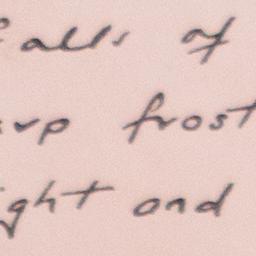 alls of
rp frost
ght and